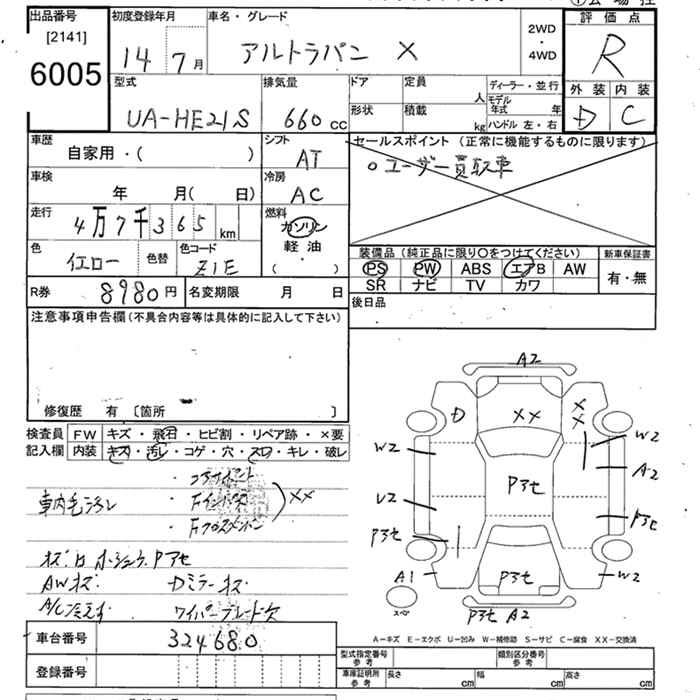 出品番号
[2141]
6005
初度登録年月
14 7月
車名・グレード
アルトラパン X
2WD
・
4WD
評価点
R
外装 内装
D C
型式
UA-HE21S
排気量
660 CC
ドア
定員
人
形状
積載
kg
ディーラー・並行
モデル年式 年
ハンドル 左・右
車歴
自家用・( )
シフト
AT
セールスポイント (正常に機能するものに限ります)
○ユーザー買取車
車検
年 月( 日)
冷房
AC
走行
4万7千365 km
燃料
ガソリン
軽油
( )
色
イエロー
色替
色コード
Z1E
装備品 (純正品に限り○をつけてください)
PS PW ABS エアB AW
SR ナビ TV カワ
新車保証書
有・無
R券 8980円
名変期限 月 日
後日品
注意事項申告欄(不具合内容等は具体的に記入して下さい)
修復歴 有 〔箇所 〕
検査員記入欄
FW キズ・飛石・ヒビ割・リペア跡・×要
内装 キズ・汚レ・コゲ・穴・スレ・キレ・破レ
コアサポート
Fインサイド
Fクロスメンバー
XX
車内毛汚レ
AWキズ
Dミラーキズ
A/C冷えず
ワイパーブレード欠
車台番号 324680
登録番号
A2
D
XX
XX
W2
W2
A2
P跡
U2
P跡
P跡
P跡
A1
W2
P跡 A2
スペア
A－キズ E－エクボ U－凹み W－補修跡 S－サビ C－腐食 XX－交換済
型式指定番号
参考
類別区分番号
参考
車庫証明用
参考
長さ cm
幅 cm
高さ cm